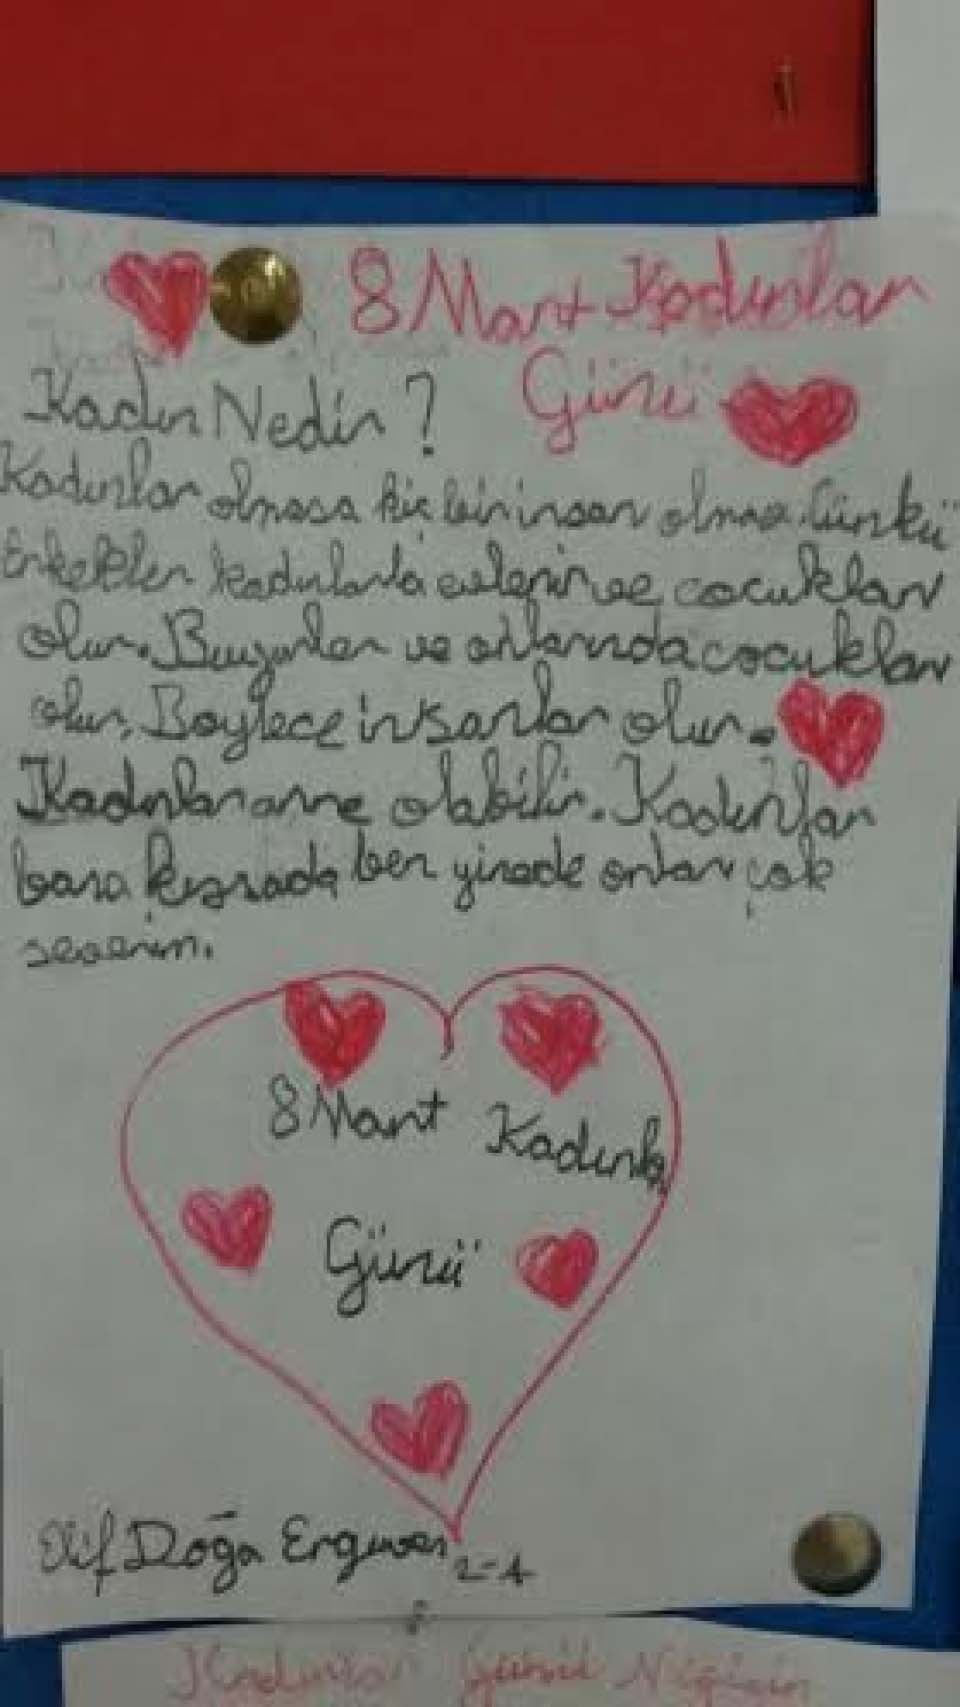 8 Mart Kadınlar
Günü
Kadın Nedir?
Kadınlar olmasa hiç bir insan olmaz. Çünkü
Erkekler kadınlarla evlenir ve çocukları
olur. Büyürler ve onlarında çocukları
olur. Böylece insanlar olur.
Kadınlar anne olabilir. Kadınlar
bana kızsada ben yinede onları çok
severim.
8 Mart Kadınla
Günü
Elif Doğa Erguven 2-A
Kadınlar Günü